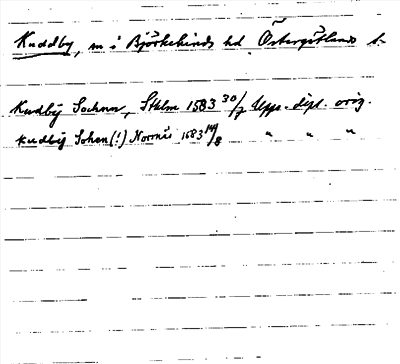 Kuddby, sn i Björkekinds hd Östergötlands l.
Kudby Sochnn, Sthlm 1583 30/7 Upps. dipl. orig.
Kudbÿ Sohen (!) 1583 14/8 " " "